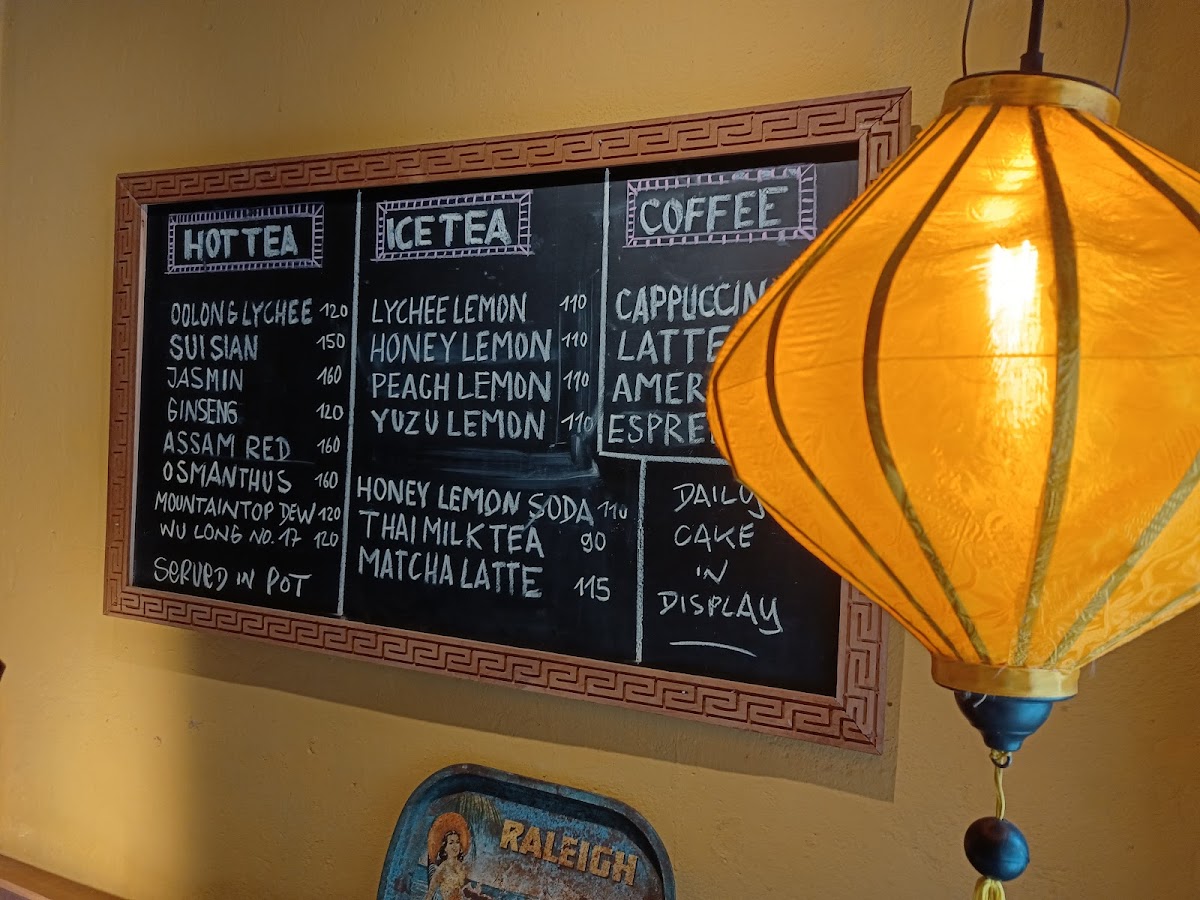 HOT TEA
OOLONG LYCHEE 120
SUI SIAN 150
JASMIN 160
GINSENG 120
ASSAM RED 160
OSMANTHUS 160
MOUNTAINTOP DEW 120
WU LONG NO. 17 120
SERVED IN POT
ICE TEA
LYCHEE LEMON 110
HONEY LEMON 110
PEACH LEMON 110
YUZU LEMON 110
HONEY LEMON SODA 110
THAI MILK TEA 90
MATCHA LATTE 115
COFFEE
CAPPUCCIN
LATTE
AMER
ESPRE
DAILY
CAKE
IN
DISPLAY
RALEIGH